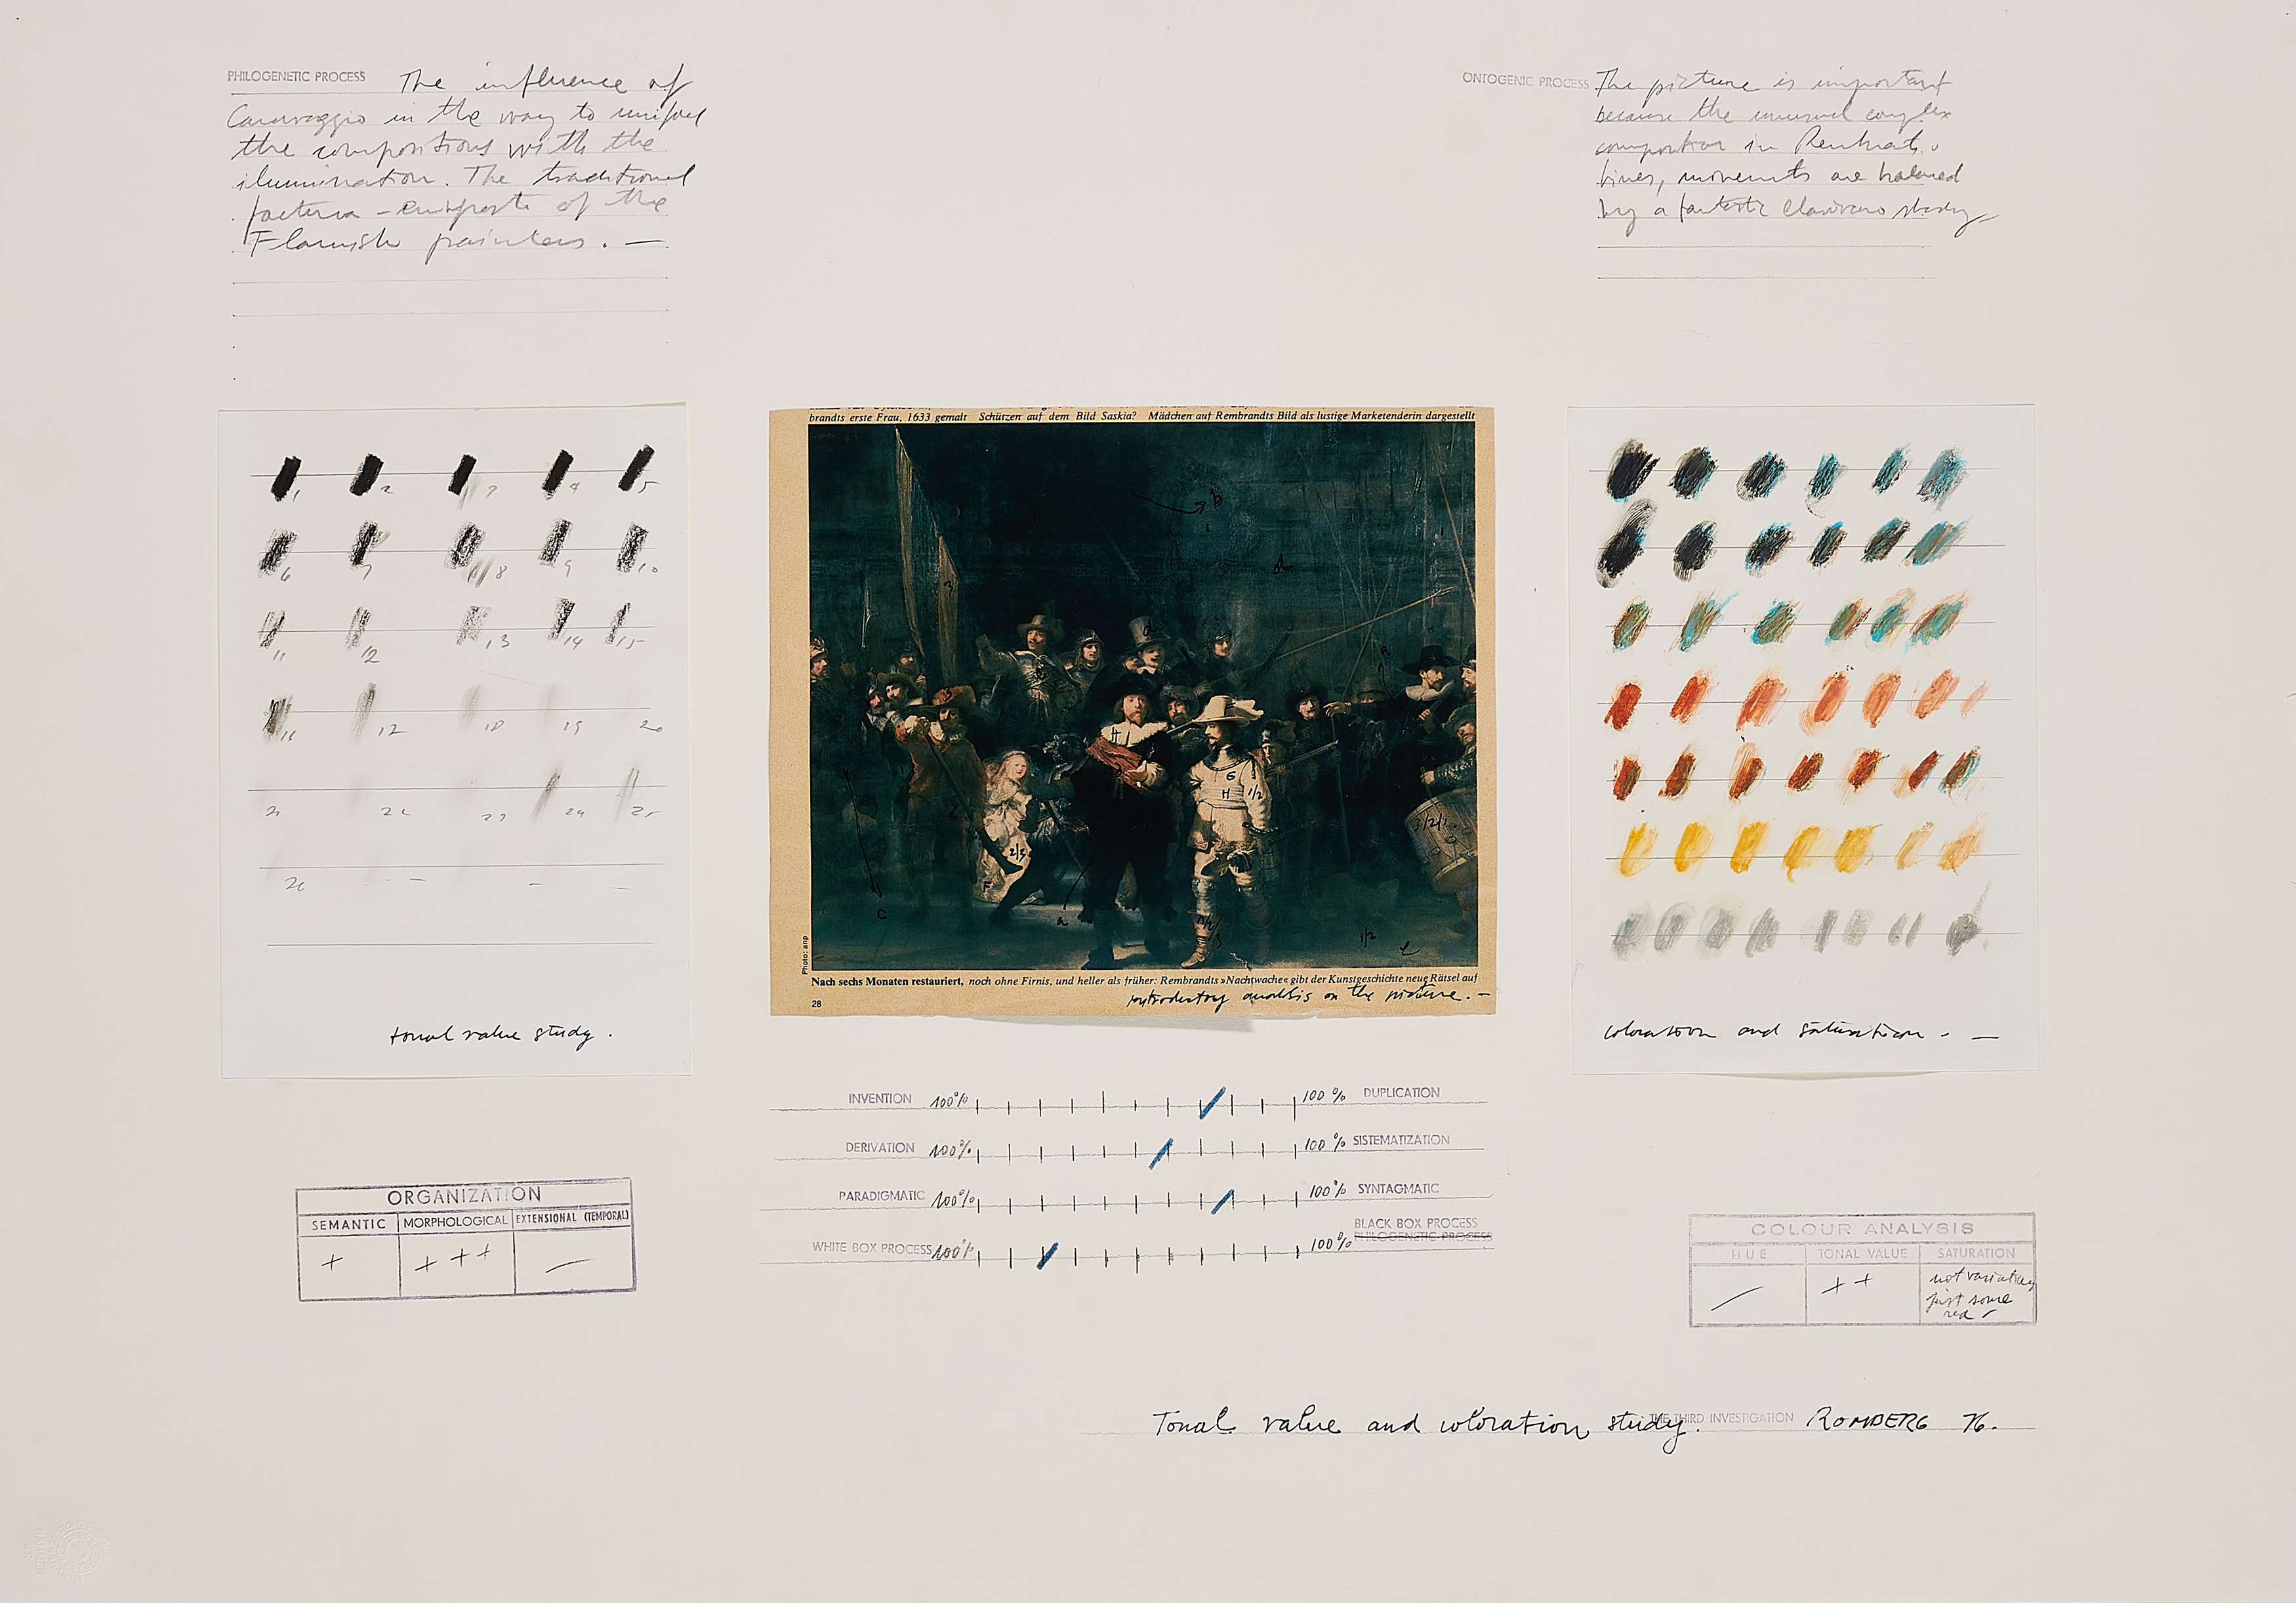 PHILOGENETIC PROCESS The influence of
Caravaggio in the way to unified
the compositions with the
ilumination. The traditional
factura - empaste of the
Flamish painters. —
ONTOGENIC PROCESS The picture is important
because the unusual complex
composition in Renbrat.
lines, movements are balanced
by a fantastic Clarivano study
1 2 3 4 5
6 7 8 9 10
11 12 13 14 15
16 17 18 19 20
21 22 23 24 25
26
tonal value study.
brandts erste Frau, 1633 gemalt Schützen auf dem Bild Saskia? Mädchen auf Rembrandts Bild als lustige Marketenderin dargestellt
b
d
d
a
H
G
H 1/2
3/2/1
2/3
F
c
a
1/2
e
Photo: anp
Nach sechs Monaten restauriert, noch ohne Firnis, und heller als früher: Rembrandts »Nachtwache« gibt der Kunstgeschichte neue Rätsel auf
28
introductory analisis on the picture. —
coloration and saturation - —
INVENTION 100% 100% DUPLICATION
DERIVATION 100% 100% SISTEMATIZATION
PARADIGMATIC 100% 100% SYNTAGMATIC
BLACK BOX PROCESS
WHITE BOX PROCESS 100% 100% PHILOGENETIC PROCESS
ORGANIZATION
SEMANTIC MORPHOLOGICAL EXTENSIONAL (TEMPORAL)
+ + + + —
COLOUR ANALYSIS
HUE TONAL VALUE SATURATION
— + + not variation
just some
red
Tonal value and coloration study. THE THIRD INVESTIGATION ROMBERG 76.